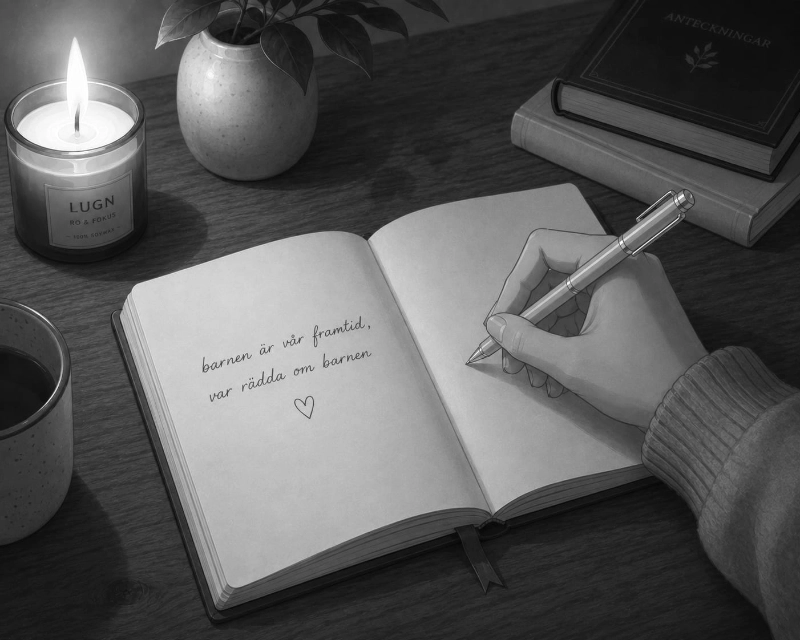 ANTECKNINGAR
LUGN
RO & FOKUS
barnen är vår framtid,
var rädda om barnen